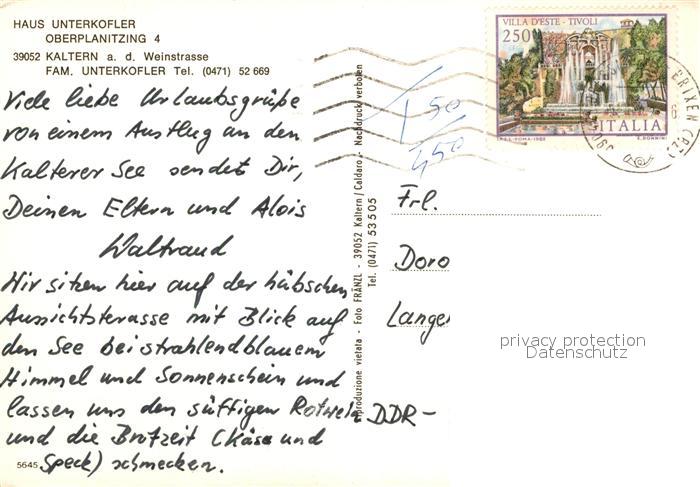 HAUS UNTERKOFLER
OBERPLANITZING 4
39052 KALTERN a. d. Weinstrasse
FAM. UNTERKOFLER Tel. (0471) 52 669
Viele liebe Urlaubsgrüße
von einem Ausflug an den
Kalterer See sendet Dir,
Deinen Eltern und Alois
Waltraud
Wir sitzen hier auf der hübschen
Aussichtsterasse mit Blick auf
den See bei strahlendblauem
Himmel und Sonnenschein und
lassen uns den süffigen Rotwein
und die Brotzeit (Käse und
Speck) schmecken.
5645
riproduzione vietata - Foto FRÄNZL - 39052 Kaltern / Caldaro - Nachdruck verboten
Tel. (0471) 53 5 05
VILLA D'ESTE - TIVOLI
250
ITALIA
I.P.Z.S. - ROMA - 1982
1 50
450
Frl.
Doro
Lange
DDR-
privacy protection
Datenschutz